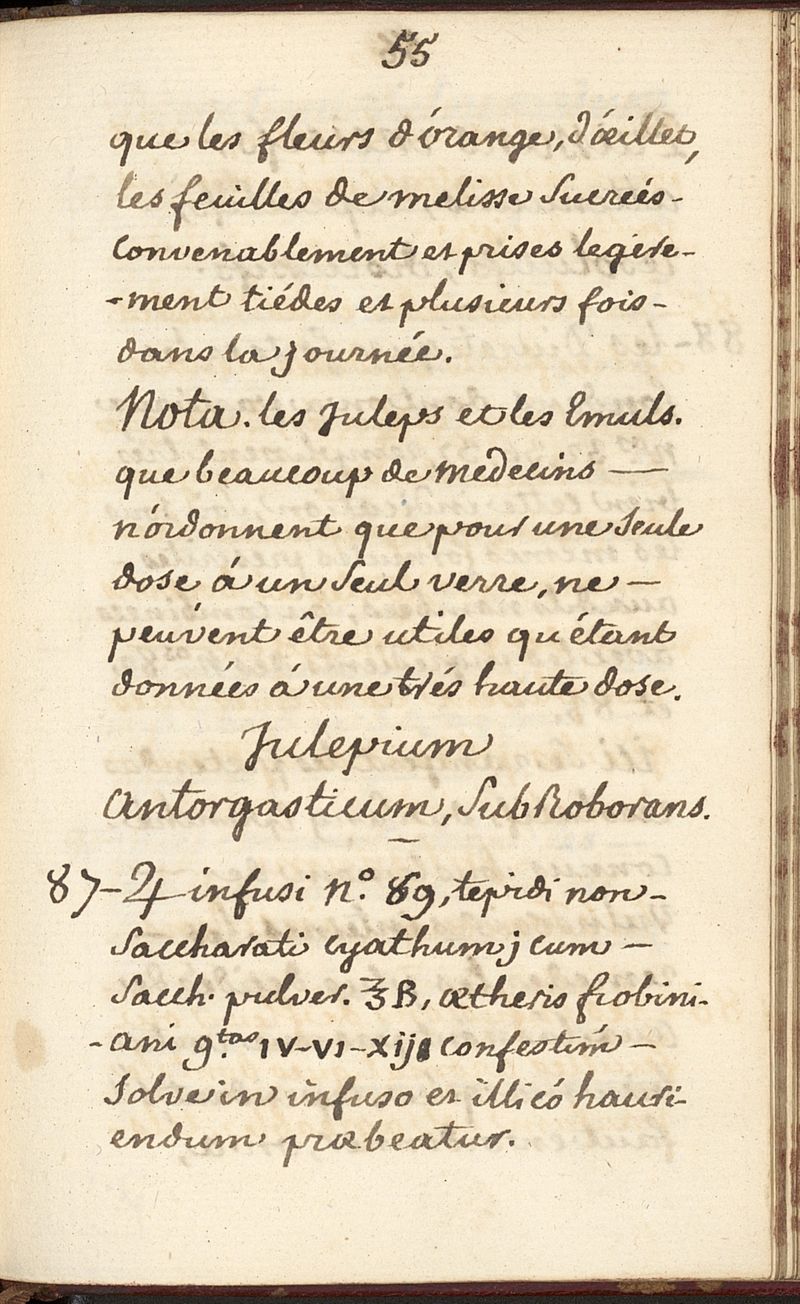 55
que les fleurs d'órange, d'œillet,
les feuilles de melisse Sucreés-
Convenablement et prises legére-
-ment tiédes et plusieurs fois-
dans la journée.
Nota. les Juleps et les Emuls.
que beaucoup de medecins —
n'órdonnent que pour une Seule
dose á un Seul verre, ne —
peuvent être utiles qu'étant
données á une trés haute dose.
Julepium
Antorgasticum, SubRoborans.
87-♃ infusi n.º 89, tepidi non-
Saccharati cyathum j cum —
Sacch. pulver. ℥ß, ætheris frobini-
-ani g.tas IV-VI-XIJ confestim —
Solve in infuso et illicó hauri-
endum præbeatur.